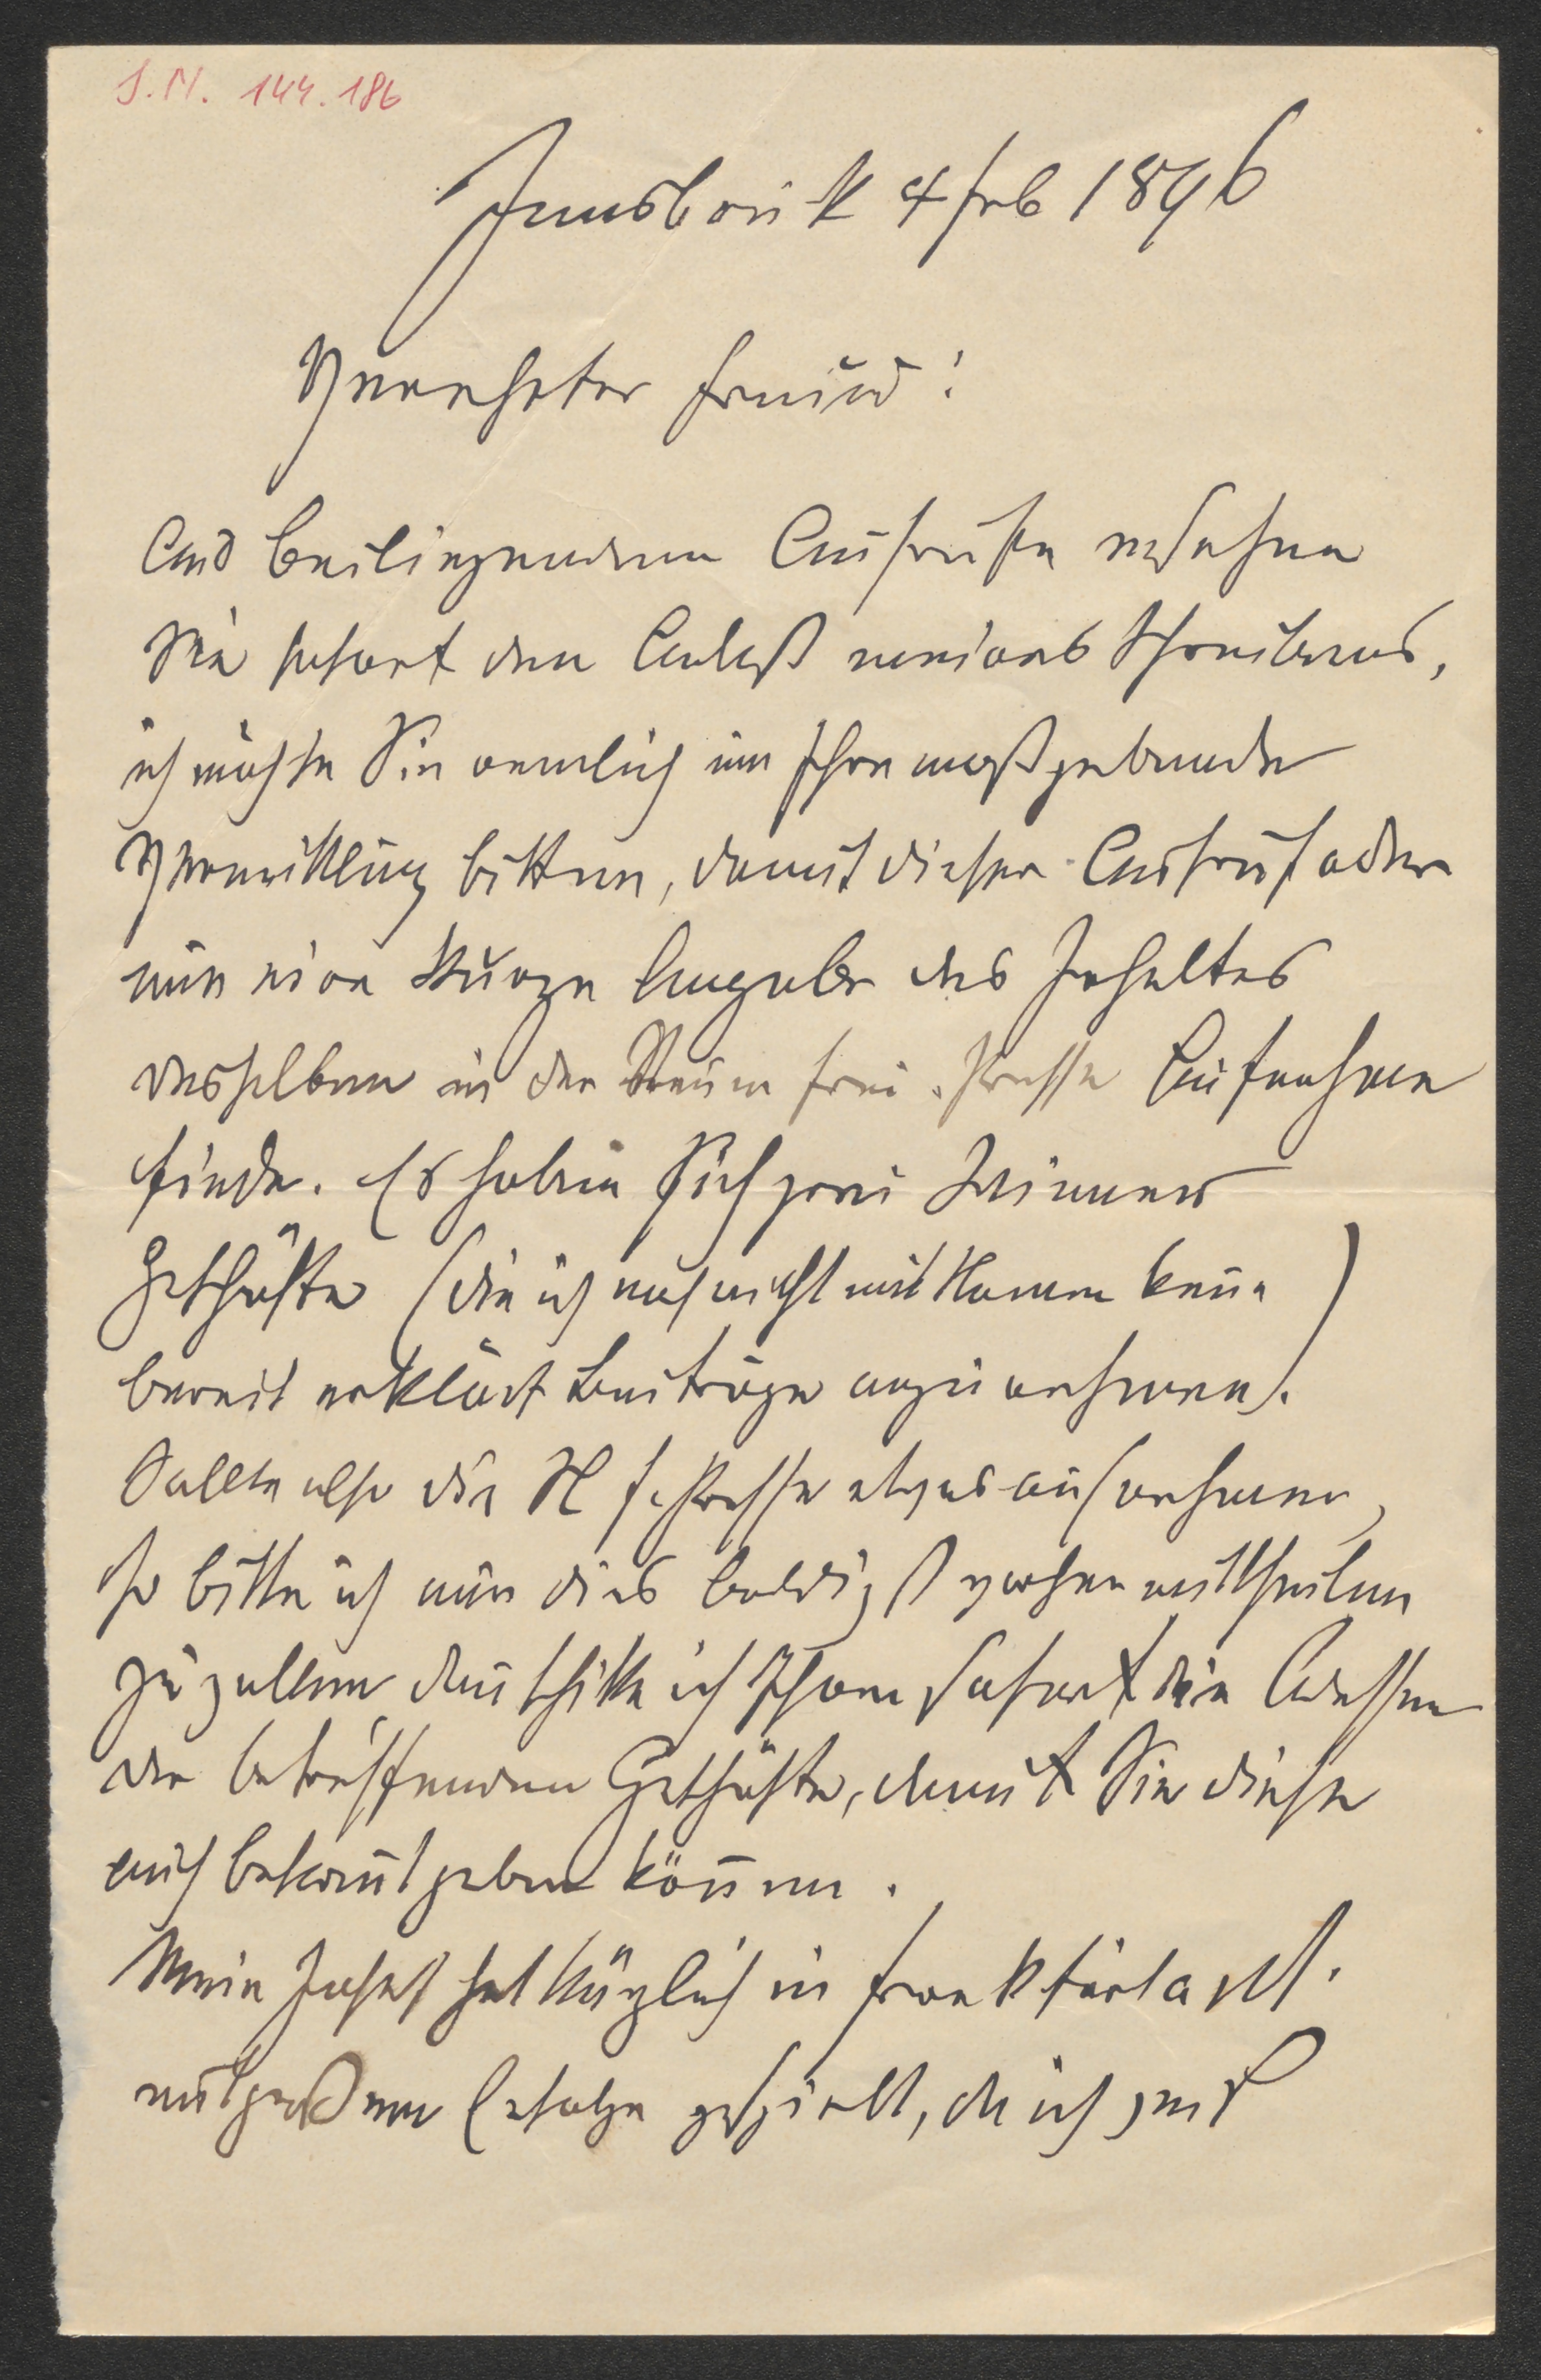 I.N. 144.186
Innsbruck 4 Feb 1896
Verehrter Freund!
Aus beiliegendem Aufrufe ersehen
Sie sofort den Anlaß meines Schreibens,
ich möchte Sie nemlich um Ihre maßgebende
Vermittlung bitten, damit dieser Aufruf oder
nur eine kurze Angabe des Inhaltes
desselben in der Neuen frei. Presse Aufnahme
finde. Es haben sich zwei Wiener
Geschäfte (die ich noch nicht mit Namen kenne)
bereit erklärt Beiträge anzunehmen.
Sollte also die N f. Presse etwas aufnehmen,
so bitte ich mir dies baldigst mittheilen
zu wollen dann schicke ich Ihnen sofort die Adressen
der betreffenden Geschäfte, damit Sie diese
auch bekannt geben können.
Mein Josef hat kürzlich in Frankfurt a M.
mit großem Erfolge gespielt, da ich